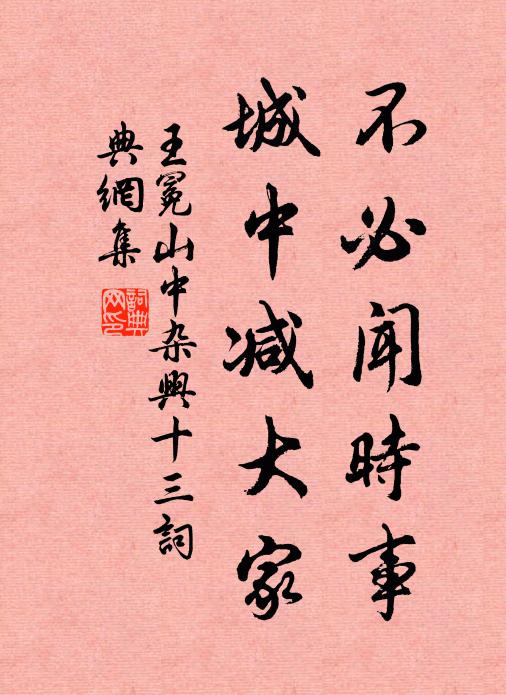 不必闻時事
城中减大家
王冕山中杂興十三詞
典網集
詞典网印